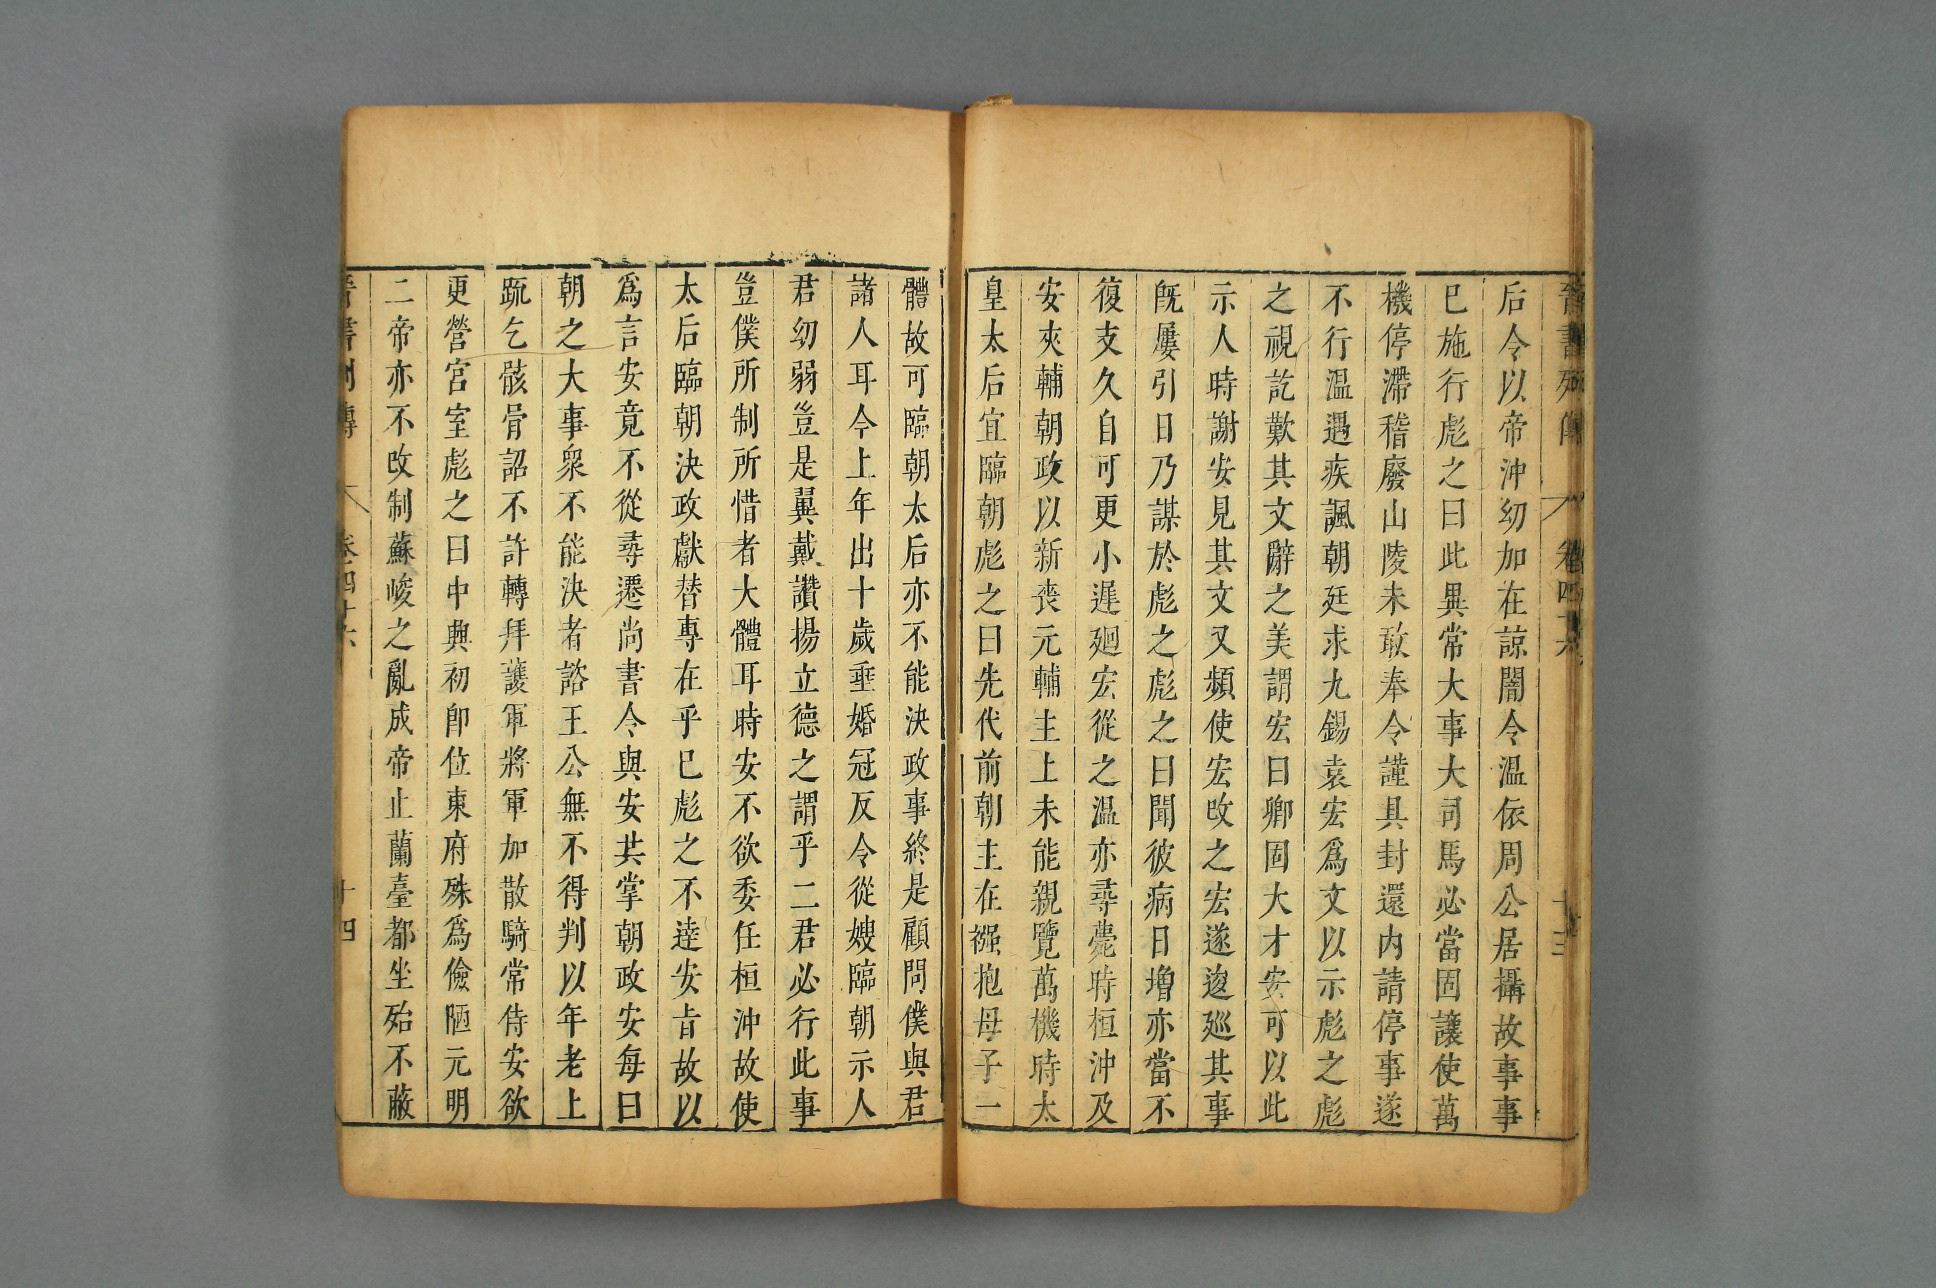 晉書列傳 卷四十六 十三
后令以帝沖幼加在諒闇令温依周公居攝故事事
已施行彪之曰此異常大事大司馬必當固讓使萬
機停滯稽廢山陵未敢奉令謹具封還內請停事遂
不行温遇疾諷朝廷求九錫袁宏爲文以示彪之彪
之視訖歎其文辭之美謂宏曰卿固大才安可以此
示人時謝安見其文又頻使宏改之宏遂逡巡其事
旣屢引日乃謀於彪之彪之曰聞彼病日增亦當不
復支久自可更小遲廻宏從之温亦尋薨時桓沖及
安夾輔朝政以新喪元輔主上未能親覽萬機時太
皇太后宜臨朝彪之曰先代前朝主在襁抱母子一
體故可臨朝太后亦不能決政事終是顧問僕與君
諸人耳今上年出十歲垂婚冠反令從嫂臨朝示人
君幼弱豈是翼戴讚揚立德之謂乎二君必行此事
豈僕所制所惜者大體耳時安不欲委任桓沖故使
太后臨朝決政獻替專在乎已彪之不達安旨故以
爲言安竟不從尋遷尚書令與安共掌朝政安每曰
朝之大事衆不能決者諮王公無不得判以年老上
疏乞骸骨詔不許轉拜護軍將軍加散騎常侍安欲
更營宮室彪之曰中興初卽位東府殊爲儉陋元明
二帝亦不改制蘇峻之亂成帝止蘭臺都坐殆不蔽
晉書列傳 卷四十六 十四